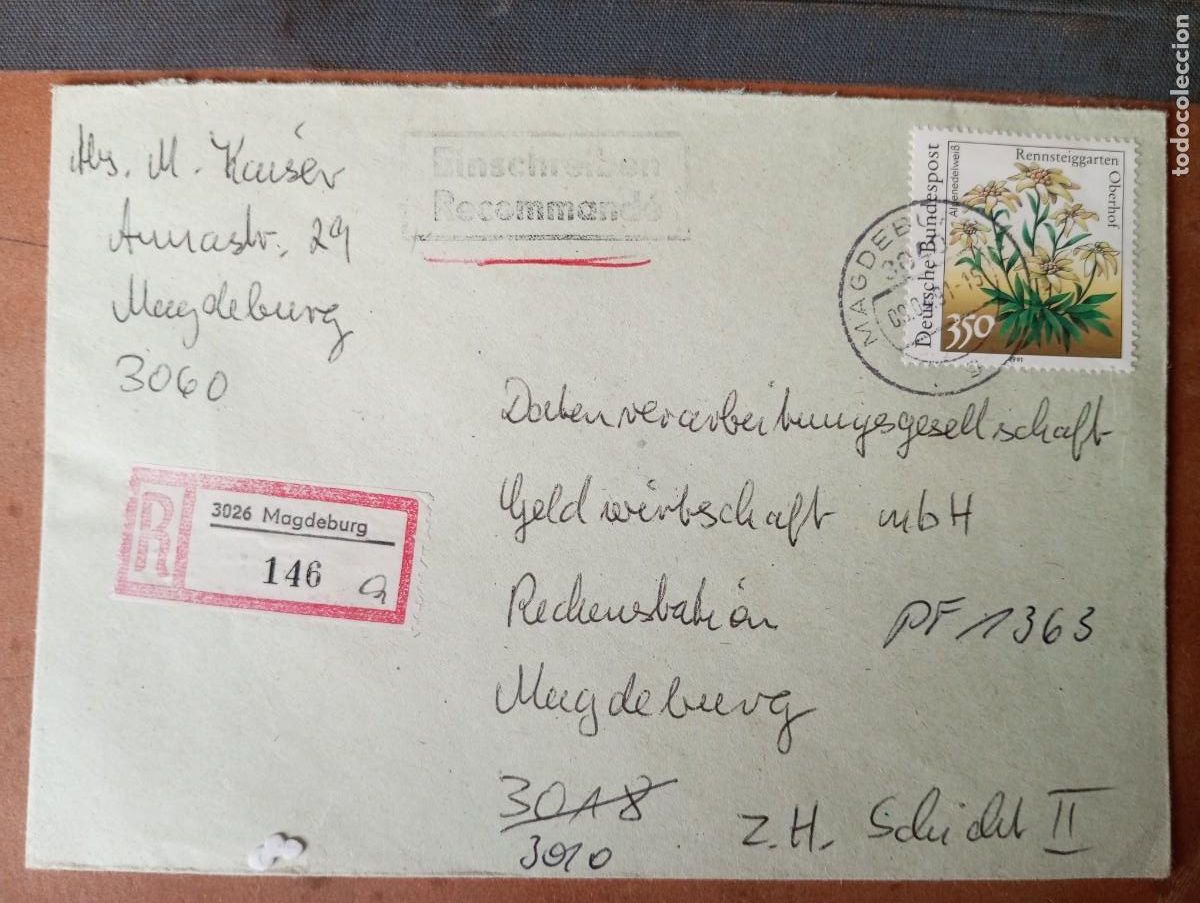 Abs. M. Kaiser
Annastr. 29
Magdeburg
3060
Einschreiben
Recommandé
Rennsteiggarten
Oberhof
Alpenedelweiß
Deutsche Bundespost
350
1991
MAGDEB
R
3026 Magdeburg
146 a
Datenverarbeitungsgesellschaft
Geldwirtschaft mbH
Rechenstation PF 1363
Magdeburg
3018
3010
z.H. Schicht II
todocoleccion